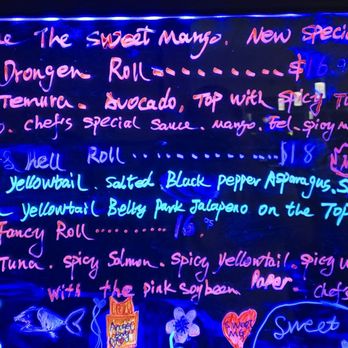 The Sweet Mango. New Speci
Drongen Roll ........... $16
Temura. Avocado, Top with Spicy T
chef's special Sauce. mango. Eel. spicy m
's Hell Roll ........... $18
yellowtail. salted. Black pepper Asparagus. S
yellowtail Belly Park Jalapeno on the Top
Fancy Roll ..........
Tuna. Spicy Salmon. Spicy yellowtail. spicy
with the pink soybean Paper. chefs
Sweet